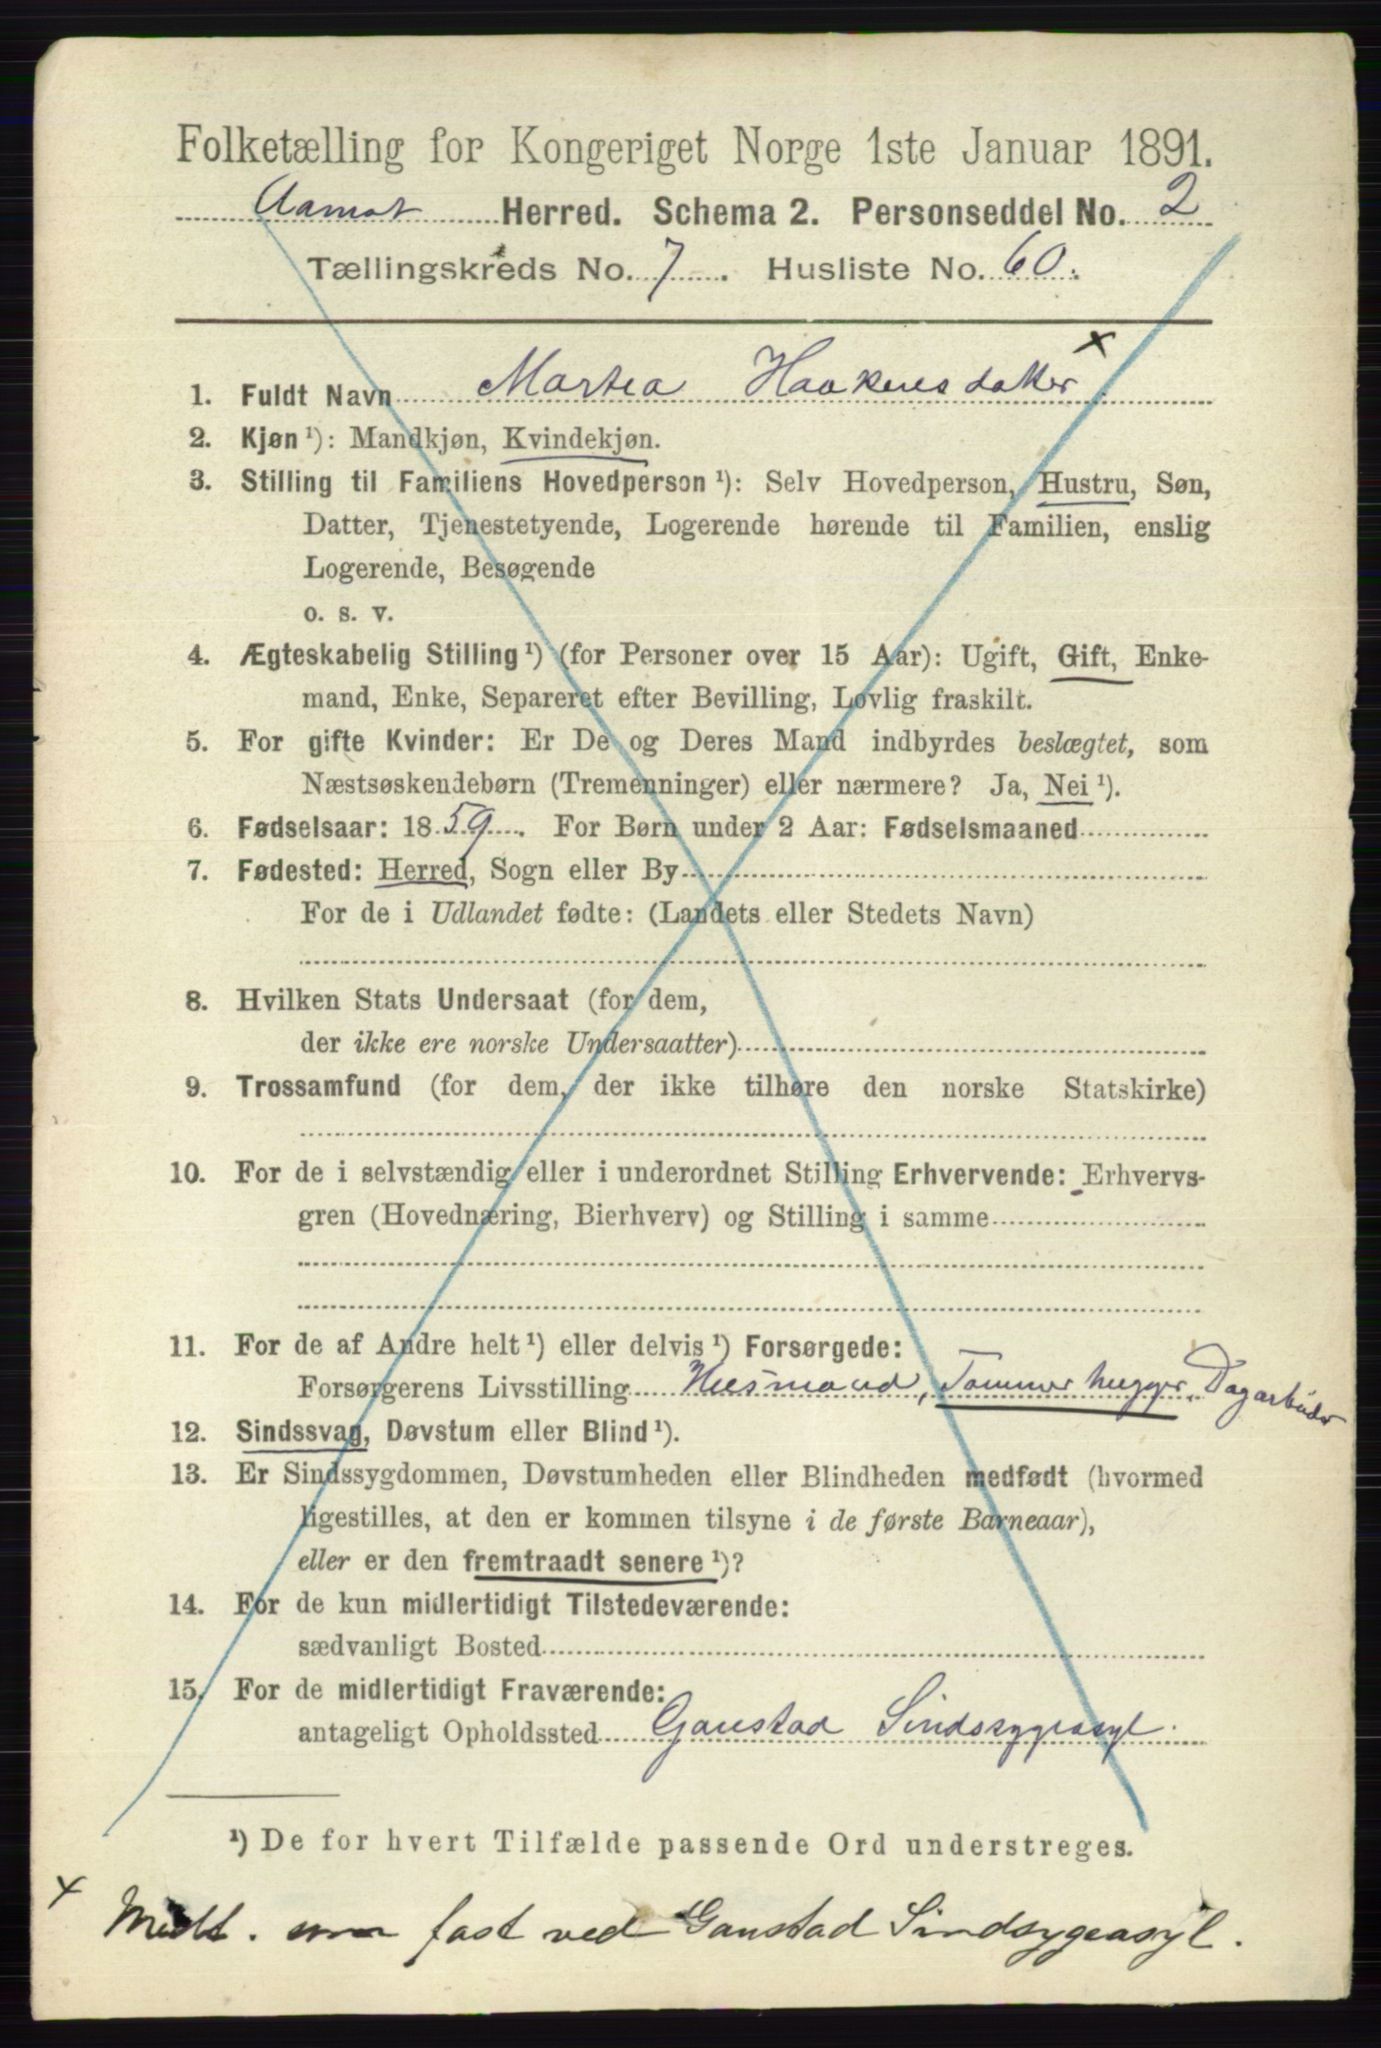 Folketælling for Kongeriget Norge 1ste Januar 1891.
Aamot Herred. Schema 2. Personseddel No. 2
Tællingskreds No. 7. Husliste No. 60.
x
1. Fuldt Navn Martea Haakensdatter
2. Kjøn ¹): Mandkjøn, Kvindekjøn.
3. Stilling til Familiens Hovedperson ¹): Selv Hovedperson, Hustru, Søn,
Datter, Tjenestetyende, Logerende hørende til Familien, enslig
Logerende, Besøgende
o. s. v.
4. Ægteskabelig Stilling ¹) (for Personer over 15 Aar): Ugift, Gift, Enke-
mand, Enke, Separeret efter Bevilling, Lovlig fraskilt.
5. For gifte Kvinder: Er De og Deres Mand indbyrdes beslægtet, som
Næstsøskendebørn (Tremenninger) eller nærmere? Ja, Nei ¹).
6. Fødselsaar: 1859. For Børn under 2 Aar: Fødselsmaaned
7. Fødested: Herred, Sogn eller By
For de i Udlandet fødte: (Landets eller Stedets Navn)
8. Hvilken Stats Undersaat (for dem,
der ikke ere norske Undersaatter)
9. Trossamfund (for dem, der ikke tilhøre den norske Statskirke)
10. For de i selvstændig eller i underordnet Stilling Erhvervende: Erhvervs-
gren (Hovednæring, Bierhverv) og Stilling i samme
11. For de af Andre helt ¹) eller delvis ¹) Forsørgede:
Forsørgerens Livsstilling Husmand, Tømmerhugger, Dagarbeider
12. Sindssvag, Døvstum eller Blind ¹).
13. Er Sindssygdommen, Døvstumheden eller Blindheden medfødt (hvormed
ligestilles, at den er kommen tilsyne i de første Barneaar),
eller er den fremtraadt senere ¹)?
14. For de kun midlertidigt Tilstedeværende:
sædvanligt Bosted
15. For de midlertidigt Fraværende:
antageligt Opholdssted Gaustad Sindssygeasyl.
¹) De for hvert Tilfælde passende Ord understreges.
x
Medt. som fast ved Gaustad Sindsygeasyl.